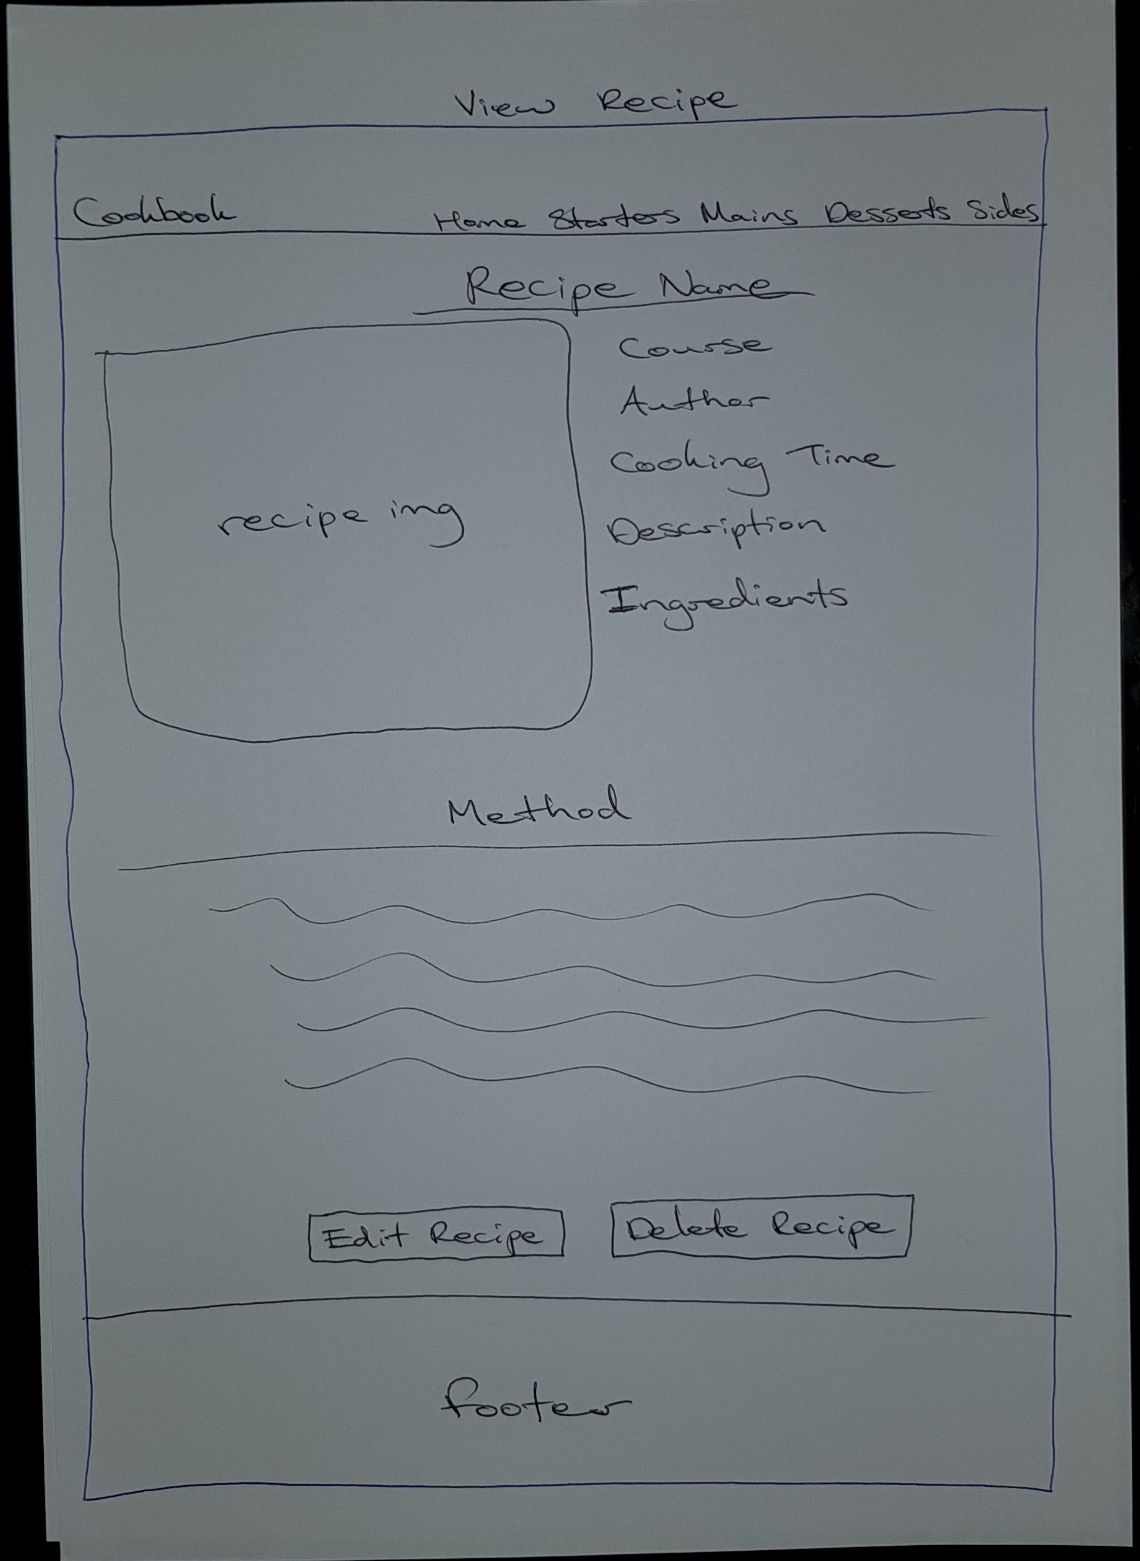 View Recipe
Cookbook Home Starters Mains Desserts Sides
Recipe Name
Course
Author
Cooking Time
Description
recipe img
Ingredients
Method
Edit Recipe Delete Recipe
footer